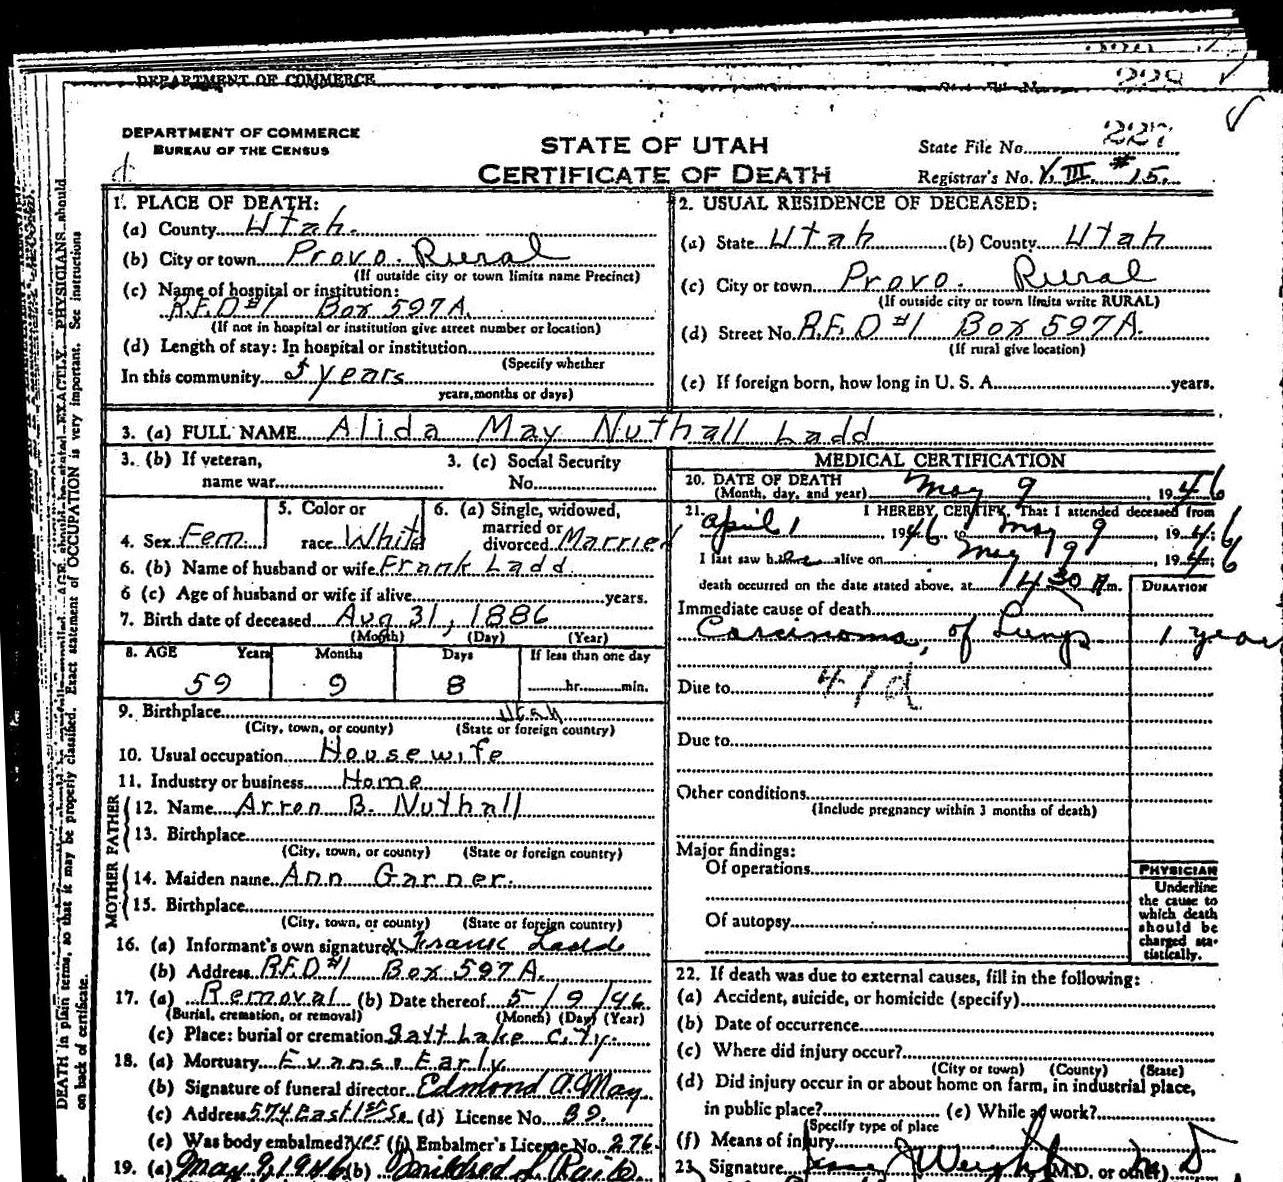 DEPARTMENT OF COMMERCE
228
DEPARTMENT OF COMMERCE
BUREAU OF THE CENSUS
STATE OF UTAH
CERTIFICATE OF DEATH
State File No. 227
Registrar's No. V. III. #15.
1. PLACE OF DEATH:
(a) County Utah.
(b) City or town Provo. Rural
(If outside city or town limits name Precinct)
(c) Name of hospital or institution:
R.F.D #1 Box 597A.
(If not in hospital or institution give street number or location)
(d) Length of stay: In hospital or institution
(Specify whether
In this community 5 years
years, months or days)
2. USUAL RESIDENCE OF DECEASED:
(a) State Utah (b) County Utah
(c) City or town Provo. Rural
(If outside city or town limits write RURAL)
(d) Street No. R.F.D #1 Box 597A.
(If rural give location)
(e) If foreign born, how long in U. S. A. years.
3. (a) FULL NAME Alida May Nuthall Ladd
3. (b) If veteran,
name war
3. (c) Social Security
No.
4. Sex Fem.
5. Color or
race White
6. (a) Single, widowed,
married or
divorced Married
6. (b) Name of husband or wife Frank Ladd
6 (c) Age of husband or wife if alive years.
7. Birth date of deceased Aug 31, 1886
(Month) (Day) (Year)
8. AGE Years Months Days If less than one day
59 9 8 hr. min.
9. Birthplace Utah
(City, town, or county) (State or foreign country)
10. Usual occupation Housewife
11. Industry or business Home
FATHER
12. Name Arron B. Nuthall
13. Birthplace
(City, town, or county) (State or foreign country)
MOTHER
14. Maiden name Ann Garner.
15. Birthplace
(City, town, or county) (State or foreign country)
16. (a) Informant's own signature x Frank Ladd
(b) Address R.F.D #1 Box 597A.
17. (a) Removal (b) Date thereof 5/9/46
(Burial, cremation, or removal) (Month) (Day) (Year)
(c) Place: burial or cremation Salt Lake City.
18. (a) Mortuary Evans & Early.
(b) Signature of funeral director Edmond A. May
(c) Address 574 East 1st So. (d) License No. 39.
(e) Was body embalmed? Yes (f) Embalmer's License No. 276.
19. (a) May 9, 1946 (b) Mildred
MEDICAL CERTIFICATION
20. DATE OF DEATH
(Month, day, and year) May 9, 1946
21. I HEREBY CERTIFY, That I attended deceased from
April 1 1946 May 9, 1946;
I last saw her alive on May 9, 1946;
death occurred on the date stated above, at m.
DURATION
Immediate cause of death
Carcinoma, of Lungs 1 year
Due to 47d
Due to
Other conditions
(Include pregnancy within 3 months of death)
Major findings:
Of operations
Of autopsy
PHYSICIAN
Underline
the cause to
which death
should be
charged sta-
tistically.
22. If death was due to external causes, fill in the following:
(a) Accident, suicide, or homicide (specify)
(b) Date of occurrence
(c) Where did injury occur?
(City or town) (County) (State)
(d) Did injury occur in or about home on farm, in industrial place,
in public place? (e) While at work?
(Specify type of place
(f) Means of injury
23. Signature M.D. or other) M D
DEATH in plain terms, so that it may be properly classified. Exact statement of OCCUPATION is very important. See instructions
on back of certificate.